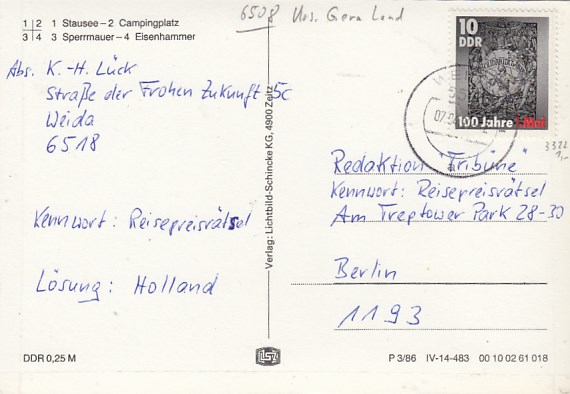 6508 Kr. Gera Land
1 | 2 1 Stausee – 2 Campingplatz
3 | 4 3 Sperrmauer – 4 Eisenhammer
Abs. K.-H. Lück
Straße der Frohen Zukunft 5c
Weida
6518
Kennwort: Reisepreisrätsel
Lösung: Holland
DDR 0,25 M
Verlag: Lichtbild-Schincke KG, 4900 Zeitz
10
DDR
100 Jahre 1. Mai
3322
1,-
Redaktion "Tribüne"
Kennwort: Reisepreisrätsel
Am Treptower Park 28-30
Berlin
1193
P 3/86 IV-14-483 00 10 02 61 018